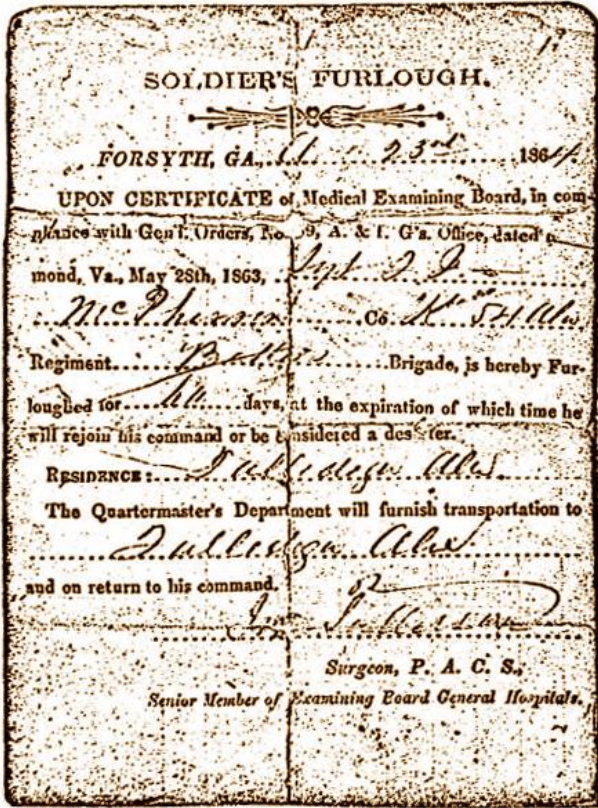 SOLDIER'S FURLOUGH.
FORSYTH, GA., 23rd 1864
UPON CERTIFICATE of Medical Examining Board, in com-
pliance with Gen'l. Orders, No. 9, A. & I. G's. Office, dated
mond, Va., May 28th, 1863,
McPherson Co. K 54 Ala
Regiment Brigade, is hereby Fur-
loughed for days, at the expiration of which time he
will rejoin his command or be considered a deserter.
RESIDENCE: Talladega Ala
The Quartermaster's Department will furnish transportation to
Talladega Ala
and on return to his command.
Surgeon, P. A. C. S.,
Senior Member of Examining Board General Hospitals.